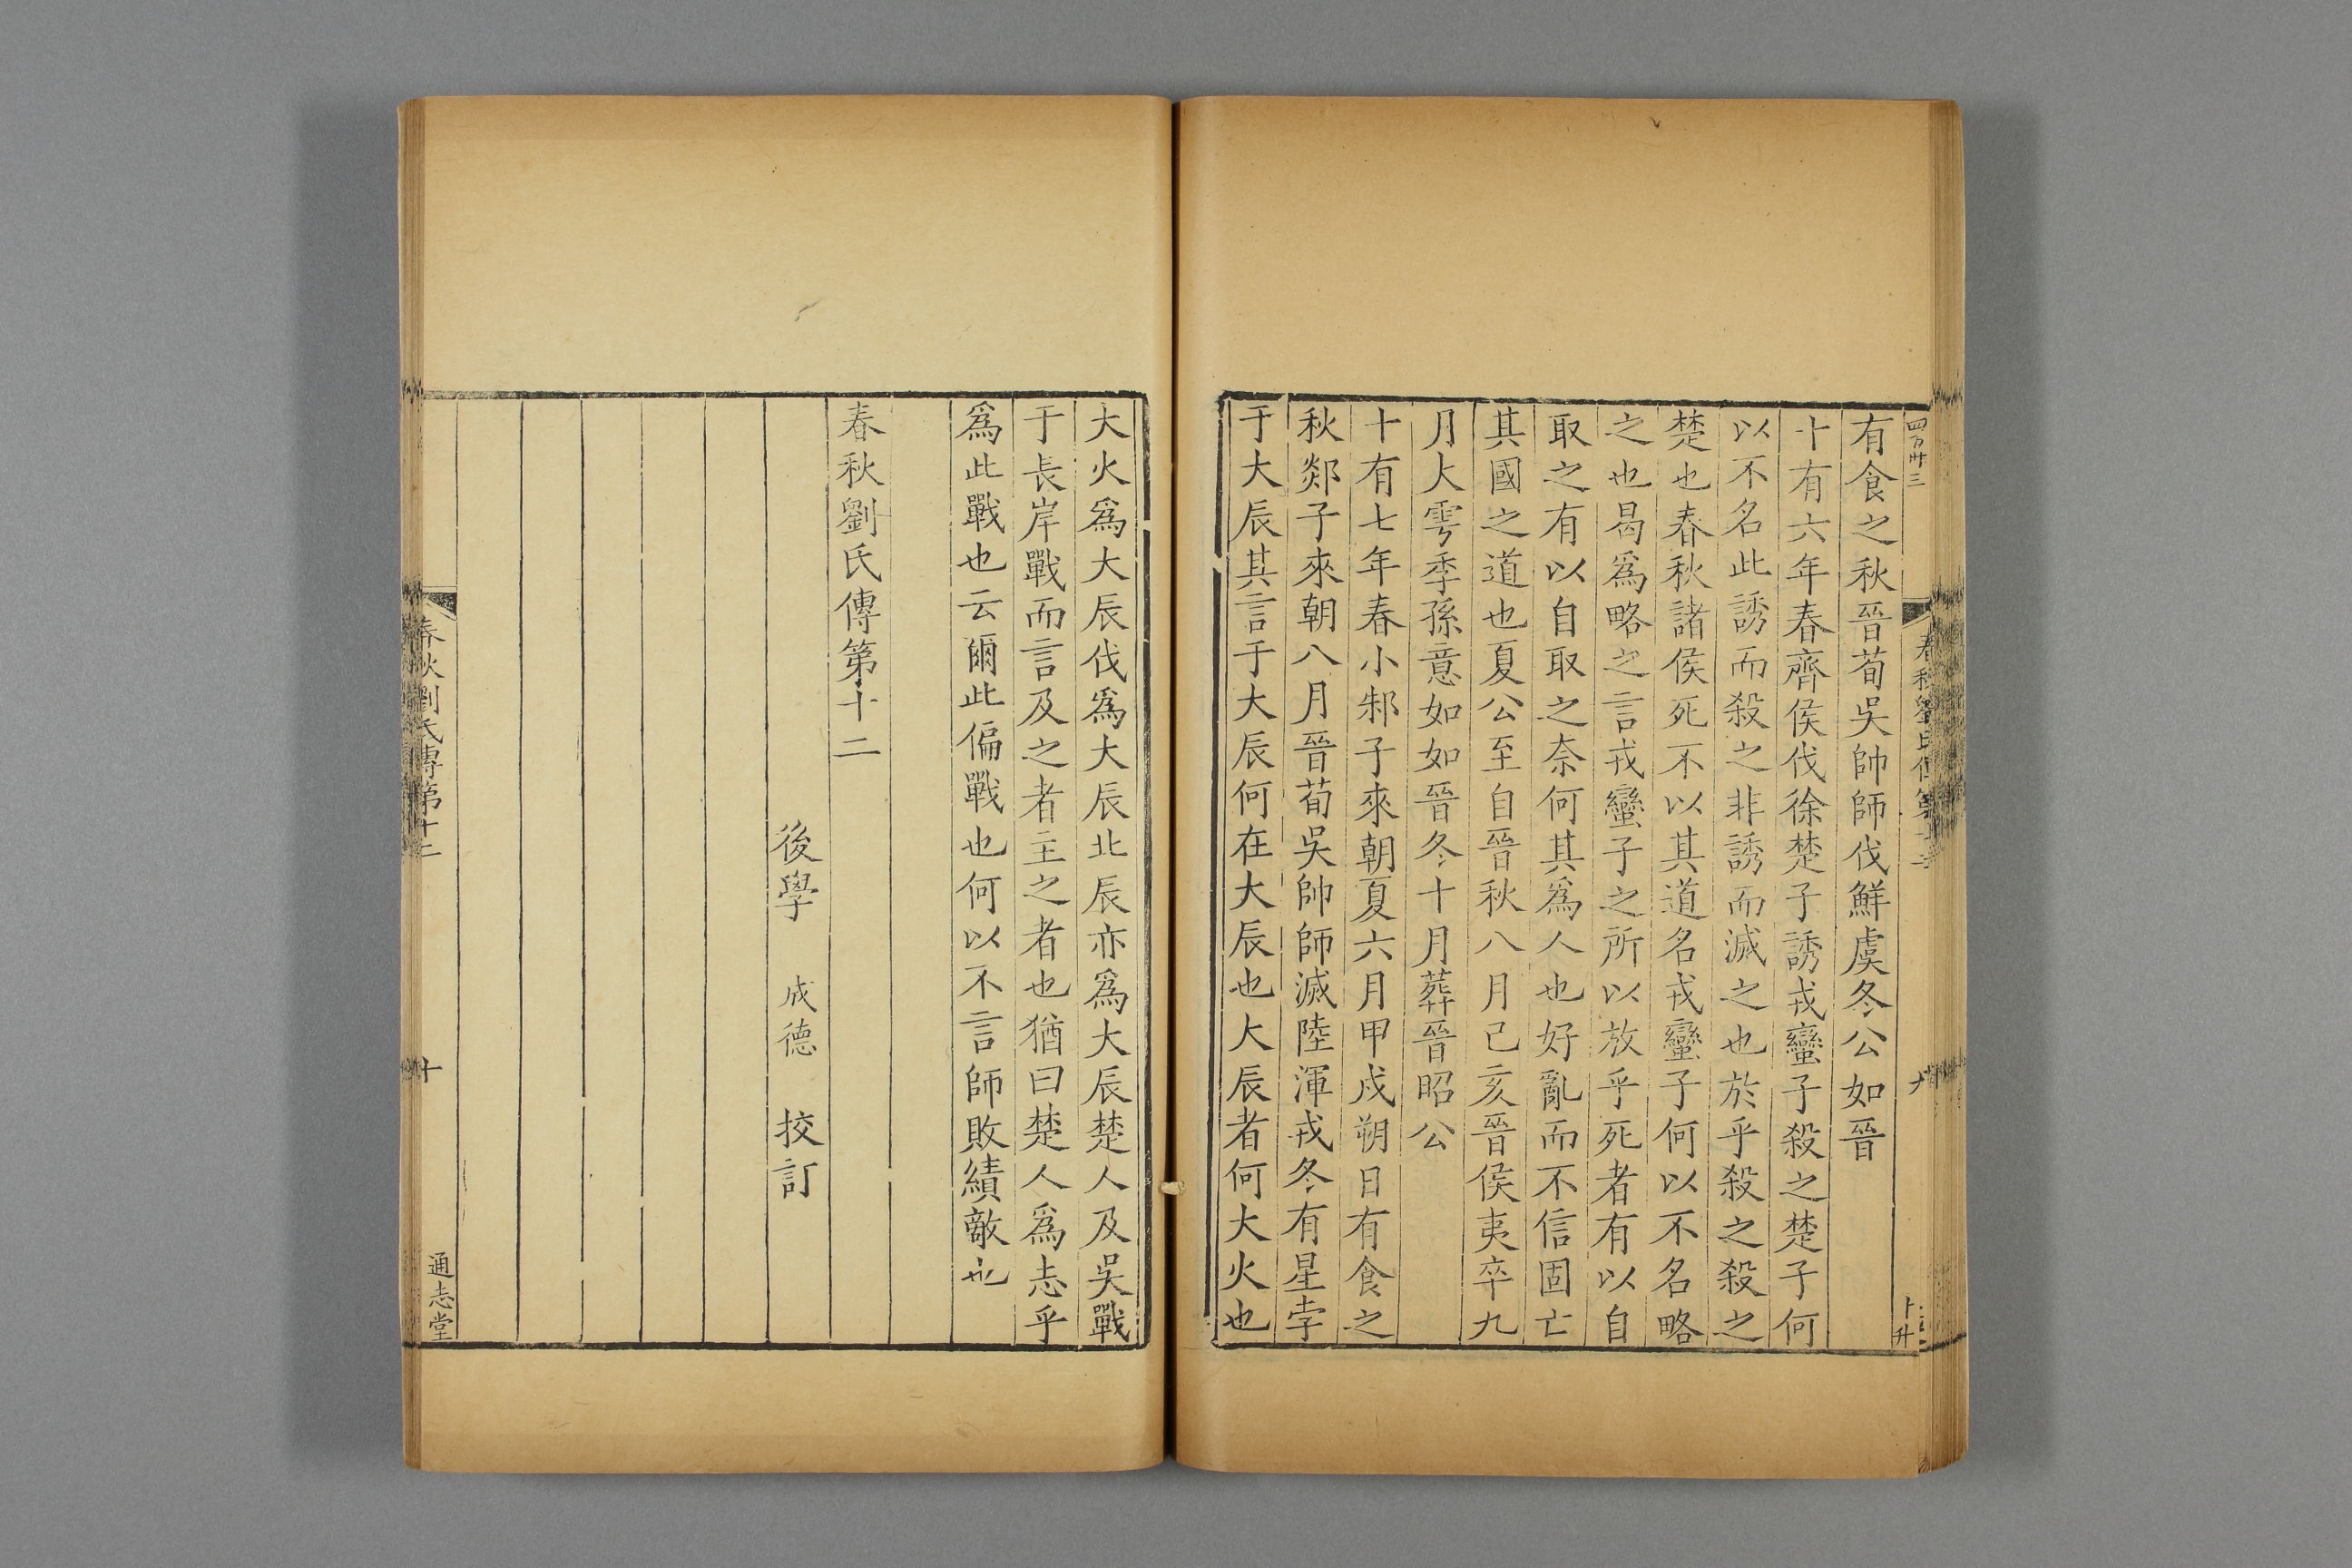 四百卅三
春秋劉氏傳第十二
有食之秋晉荀吳帥師伐鮮虞冬公如晉
十有六年春齊侯伐徐楚子誘戎蠻子殺之楚子何
以不名此誘而殺之非誘而滅之也於乎殺之殺之
楚也春秋諸侯死不以其道名戎蠻子何以不名略
之也曷爲略之言戎蠻子之所以放乎死者有以自
取之有以自取之奈何其爲人也好亂而不信固亡
其國之道也夏公至自晉秋八月己亥晉侯夷卒九
月大雩季孫意如如晉冬十月葬晉昭公
十有七年春小邾子來朝夏六月甲戌朔日有食之
秋郯子來朝八月晉荀吳帥師滅陸渾戎冬有星孛
于大辰其言于大辰何在大辰也大辰者何大火也
大火爲大辰伐爲大辰北辰亦爲大辰楚人及吳戰
于長岸戰而言及之者主之者也猶曰楚人爲志乎
爲此戰也云爾此偏戰也何以不言師敗績敵也
春秋劉氏傳第十二
後學 成德 挍訂
春秋劉氏傳第十二
十
通志堂